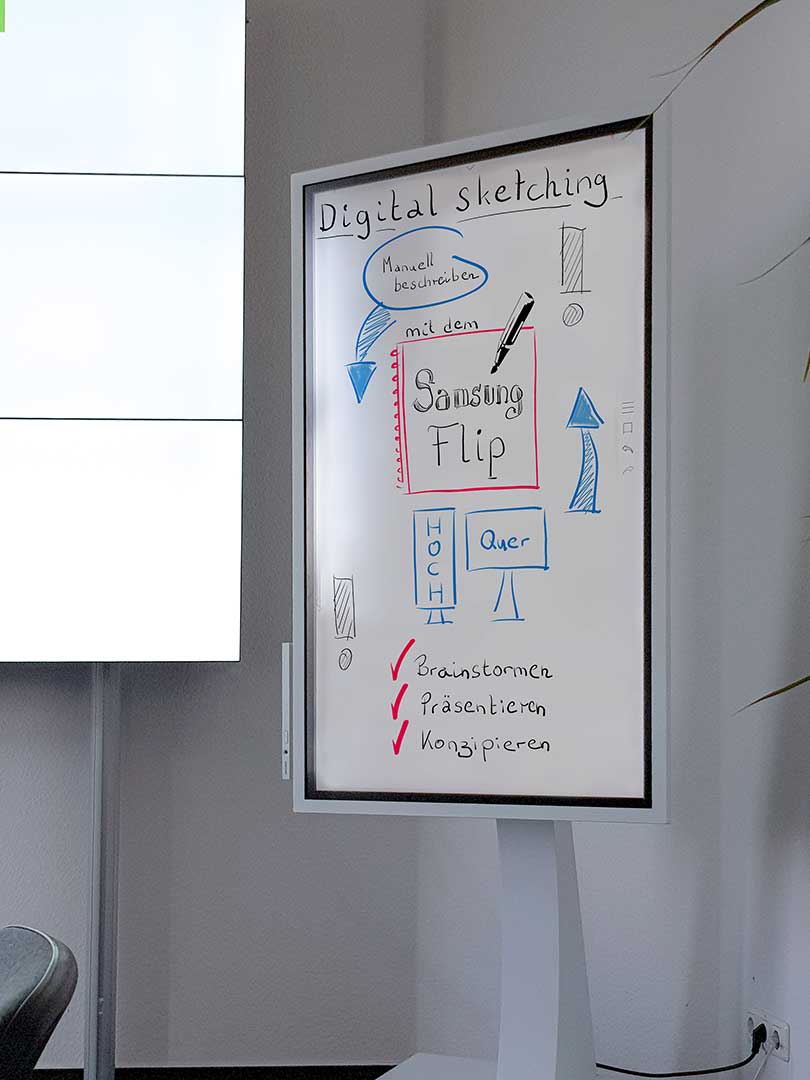 Digital sketching
Manuell
beschreiben
mit dem
Samsung
Flip
HOCH
Quer
Brainstormen
Präsentieren
Konzipieren